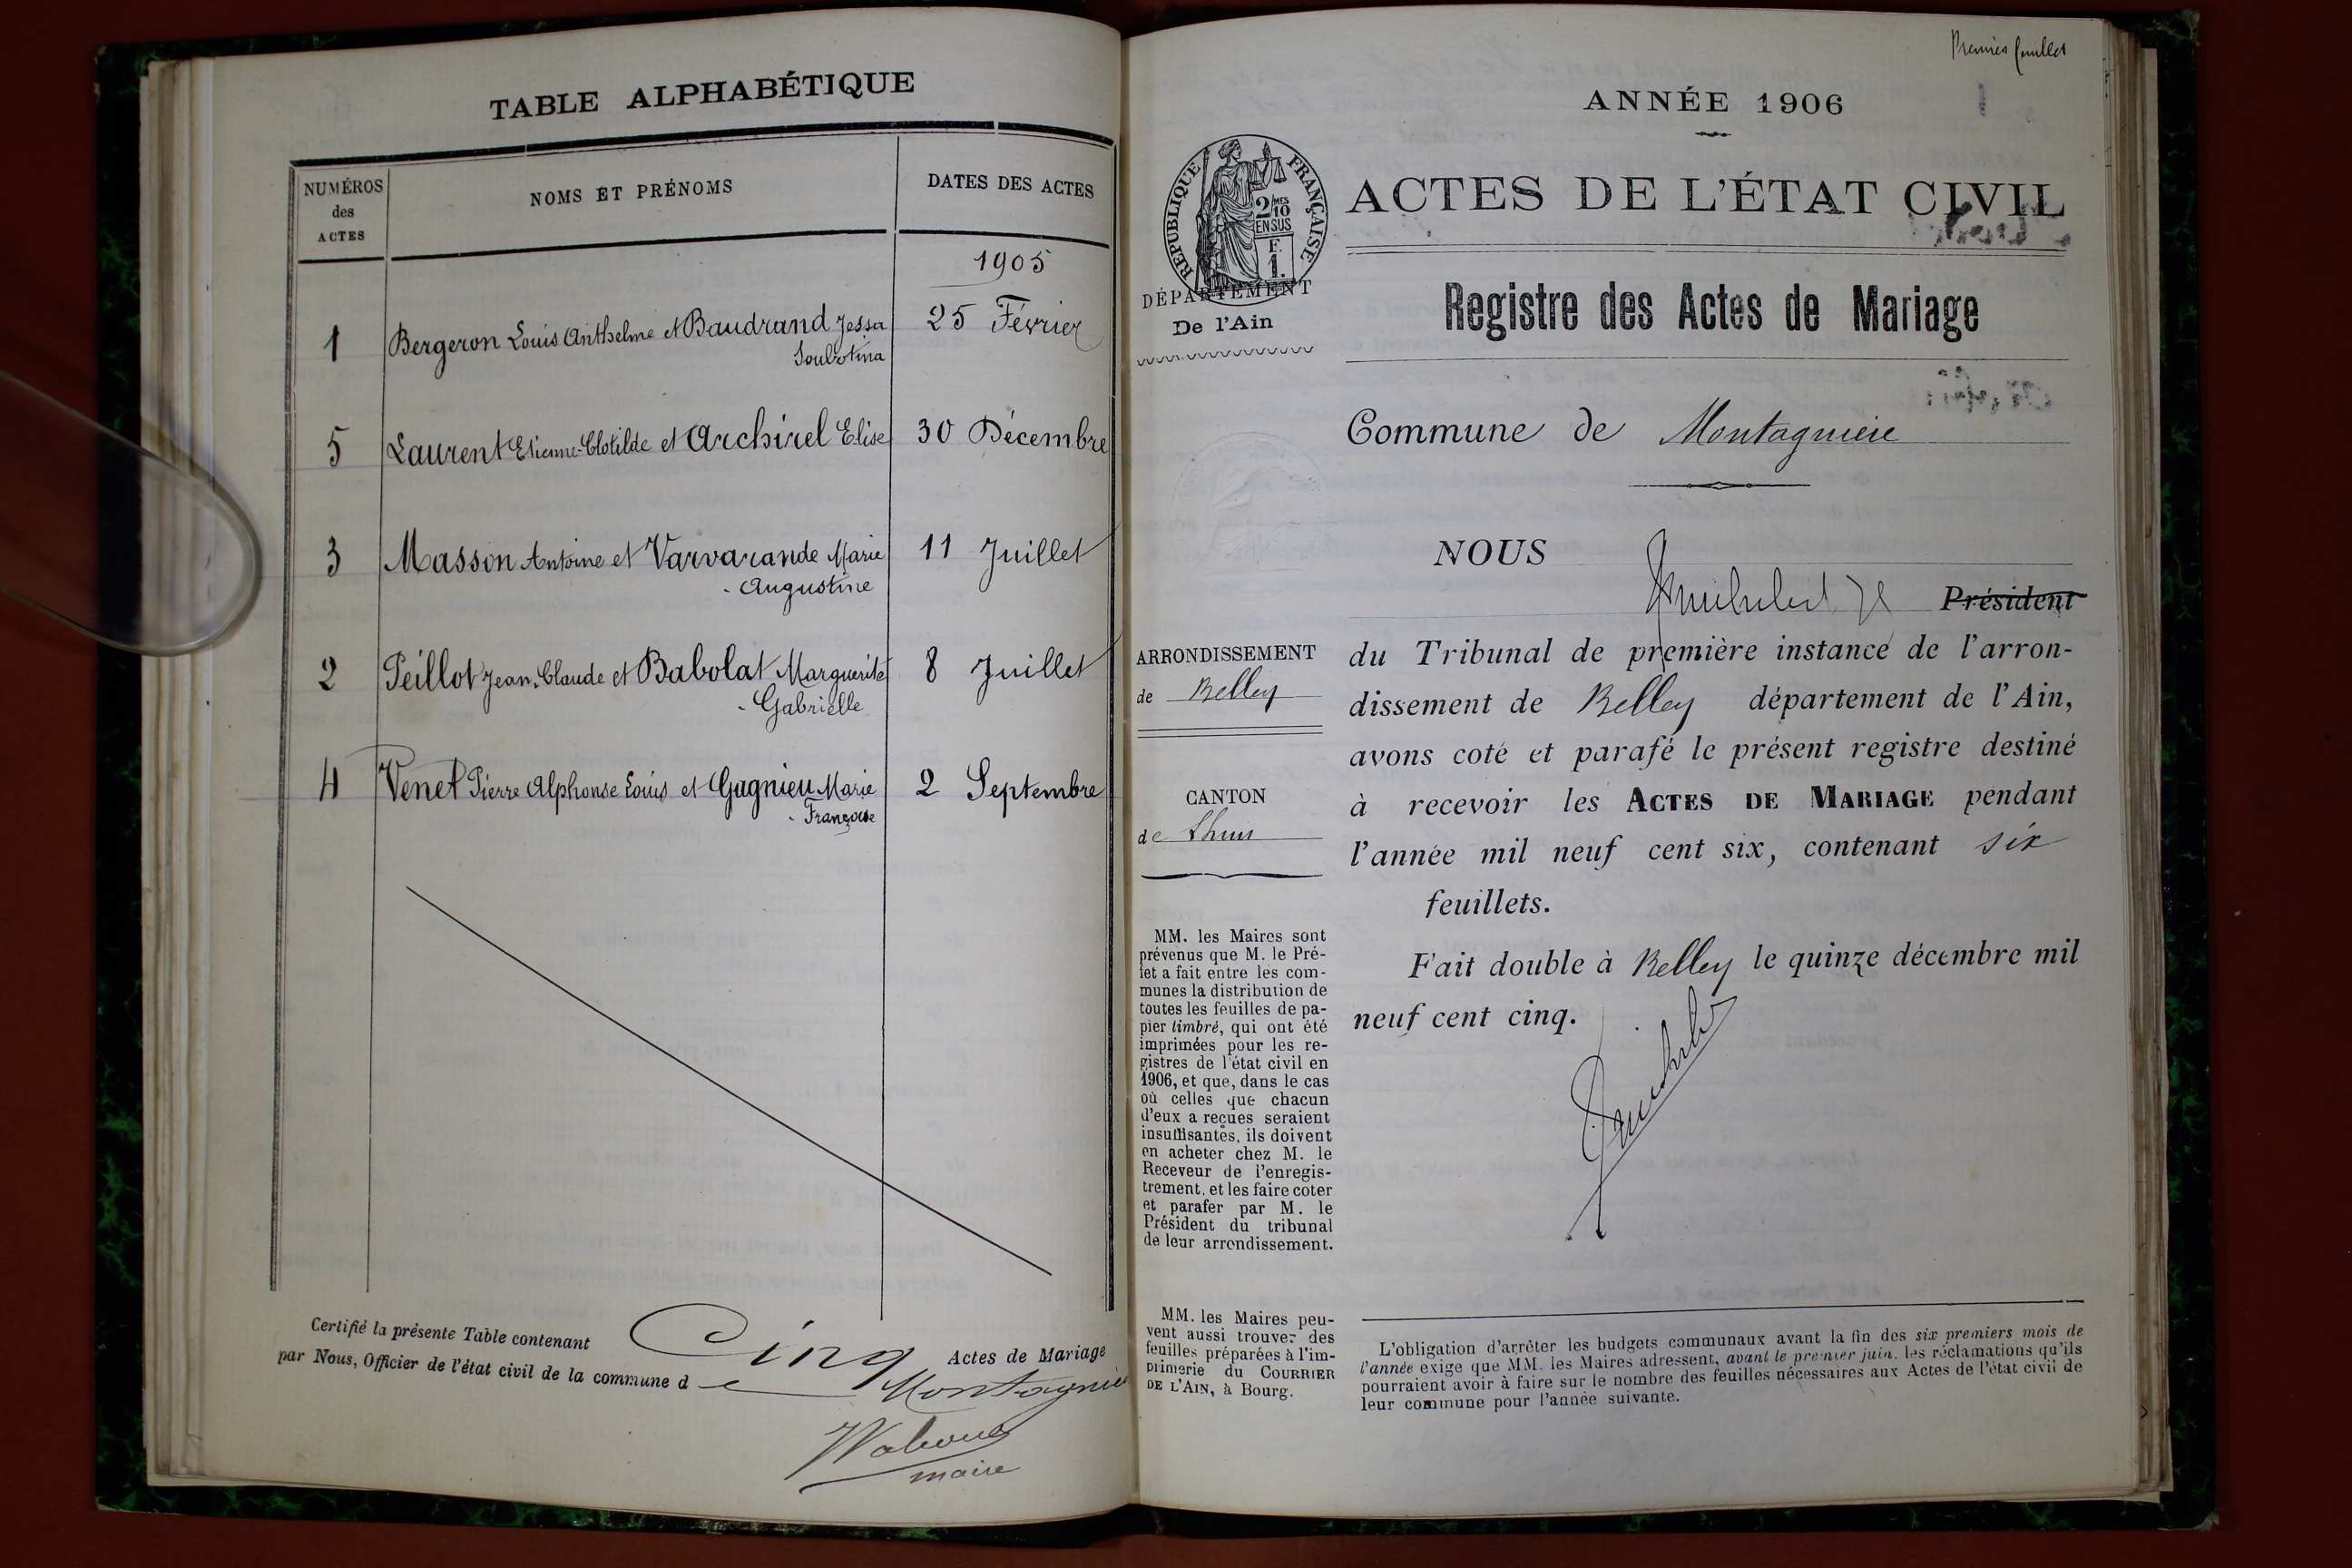 TABLE ALPHABÉTIQUE
NUMÉROS
des
ACTES
NOMS ET PRÉNOMS
DATES DES ACTES
1905
1 Bergeron Louis Anthelme et Baudrand Jessa 25 Février
Soubotina
5 Laurent Etienne-Clotilde et Archirel Elise 30 Décembre
3 Masson Antoine et Varvarande Marie 11 Juillet
- Augustine
2 Peillot Jean-Claude et Babolat Marguerite 8 Juillet
- Gabrielle
4 Venet Pierre Alphonse Louis et Gagnieu Marie 2 Septembre
- Françoise
Certifié la présente Table contenant Cinq Actes de Mariage
par Nous, Officier de l'état civil de la commune de Montagnieu
maire
Premier feuillet
ANNÉE 1906
RÉPUBLIQUE FRANÇAISE
2/10 MES
EN SUS
F.
1.
DÉPARTEMENT
De l'Ain
ACTES DE L'ÉTAT CIVIL
Registre des Actes de Mariage
Commune de Montagnieu
NOUS
Président
ARRONDISSEMENT
de Belley
CANTON
de Lhuis
du Tribunal de première instance de l'arron-
dissement de Belley département de l'Ain,
avons coté et parafé le présent registre destiné
à recevoir les ACTES DE MARIAGE pendant
l'année mil neuf cent six, contenant six
feuillets.
Fait double à Belley le quinze décembre mil
neuf cent cinq.
MM. les Maires sont
prévenus que M. le Pré-
fet a fait entre les com-
munes la distribution de
toutes les feuilles de pa-
pier timbré, qui ont été
imprimées pour les re-
gistres de l'état civil en
1906, et que, dans le cas
où celles que chacun
d'eux a reçues seraient
insuffisantes, ils doivent
en acheter chez M. le
Receveur de l'enregis-
trement, et les faire coter
et parafer par M. le
Président du tribunal
de leur arrondissement.
MM. les Maires peu-
vent aussi trouver des
feuilles préparées à l'im-
primerie du COURRIER
DE L'AIN, à Bourg.
L'obligation d'arrêter les budgets communaux avant la fin des six premiers mois de
l'année exige que MM. les Maires adressent, avant le premier juin, les réclamations qu'ils
pourraient avoir à faire sur le nombre des feuilles nécessaires aux Actes de l'état civil de
leur commune pour l'année suivante.